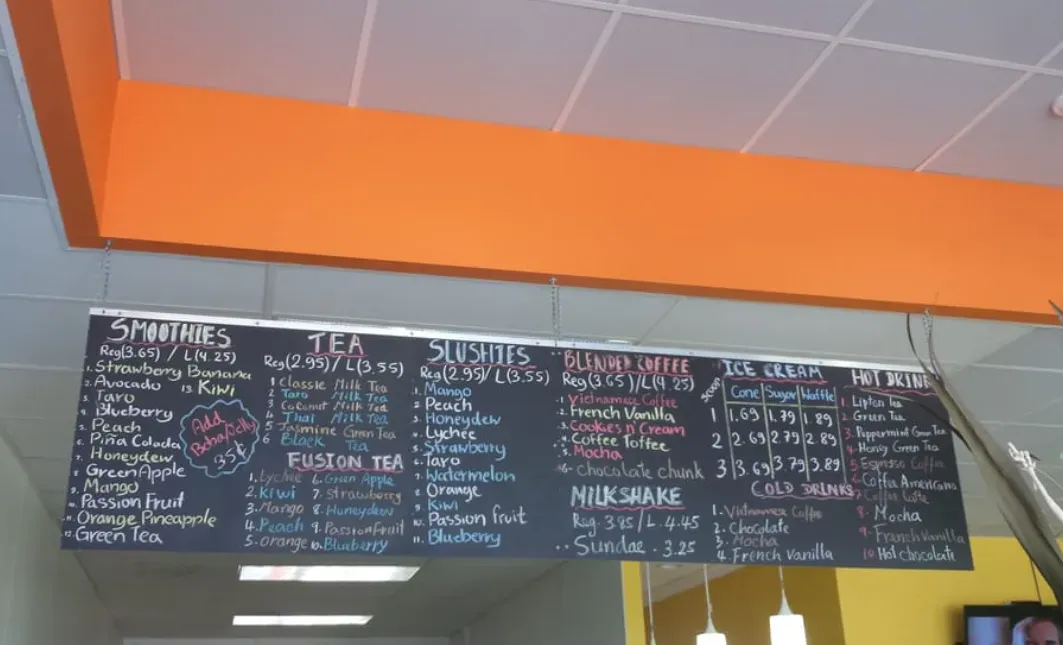 SMOOTHIES
Reg(3.65) / L(4.25)
1. Strawberry Banana
2. Avocado
13. Kiwi
3. Taro
4. Blueberry
5. Peach
6. Piña Colada
7. Honeydew
8. Green Apple
9. Mango
10. Passion Fruit
11. Orange Pineapple
12. Green Tea
Add
Boba/Jelly
35¢
TEA
Reg(2.95) / L(3.55)
1 Classic Milk Tea
2 Taro Milk Tea
3 Coconut Milk Tea
4 Thai Milk Tea
5 Jasmine Green Tea
6 Black Tea
FUSION TEA
1. Lychee
2. Kiwi
3. Mango
4. Peach
5. Orange
6. Green Apple
7. Strawberry
8. Honeydew
9. Passion Fruit
10. Blueberry
SLUSHIES
Reg(2.95) / L(3.55)
1. Mango
2. Peach
3. Honeydew
4. Lychee
5. Strawberry
6. Taro
7. Watermelon
8. Orange
9. Kiwi
10. Passion fruit
11. Blueberry
BLENDED COFFEE
Reg(3.65)/L(4.25)
1. Vietnamese Coffee
2. French Vanilla
3. Cookies n' Cream
4. Coffee Toffee
5. Mocha
6. chocolate chunk
MILKSHAKE
Reg. 3.85 / L. 4.45
Sundae . 3.25
ICE CREAM
Scoop Cone Sugar Waffle
1 1.69 1.79 1.89
2 2.69 2.79 2.89
3 3.69 3.79 3.89
COLD DRINKS
1. Vietnamese Coffee
2. Chocolate
3. Mocha
4. French Vanilla
HOT DRINK
1. Lipton tea
2. Green Tea
3. Peppermint Green Tea
4. Honey Green Tea
5. Espresso Coffee
6. Coffee Americano
7. Coffee Latte
8. Mocha
9. French Vanilla
10 Hot chocolate